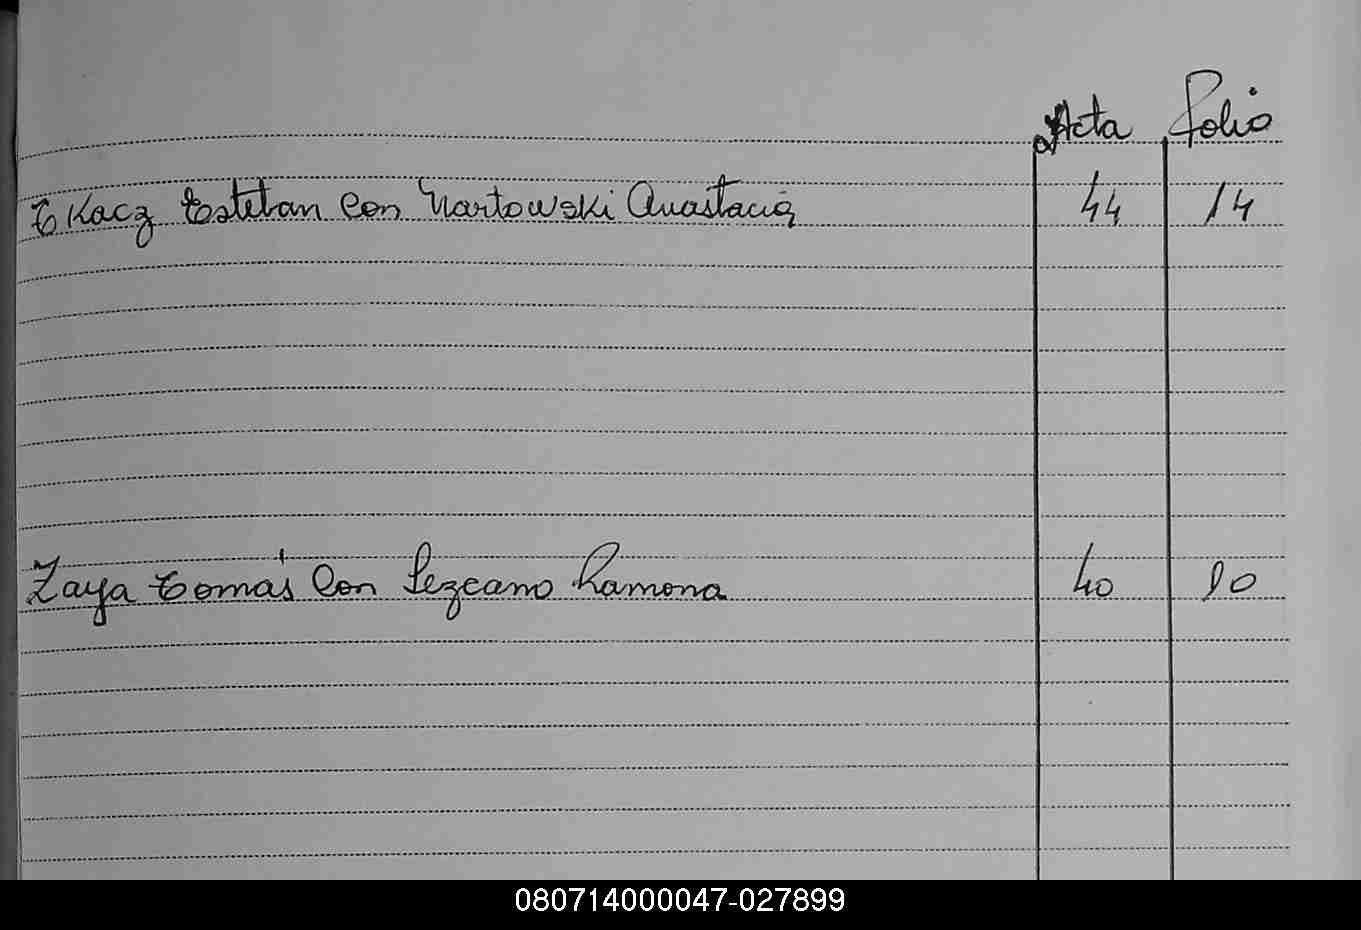 Acta Folio
Tkacz Esteban con Nartowski Anastacia 44 14
Zaya Tomás Con Lezcano Ramona 40 10
080714000047-027899